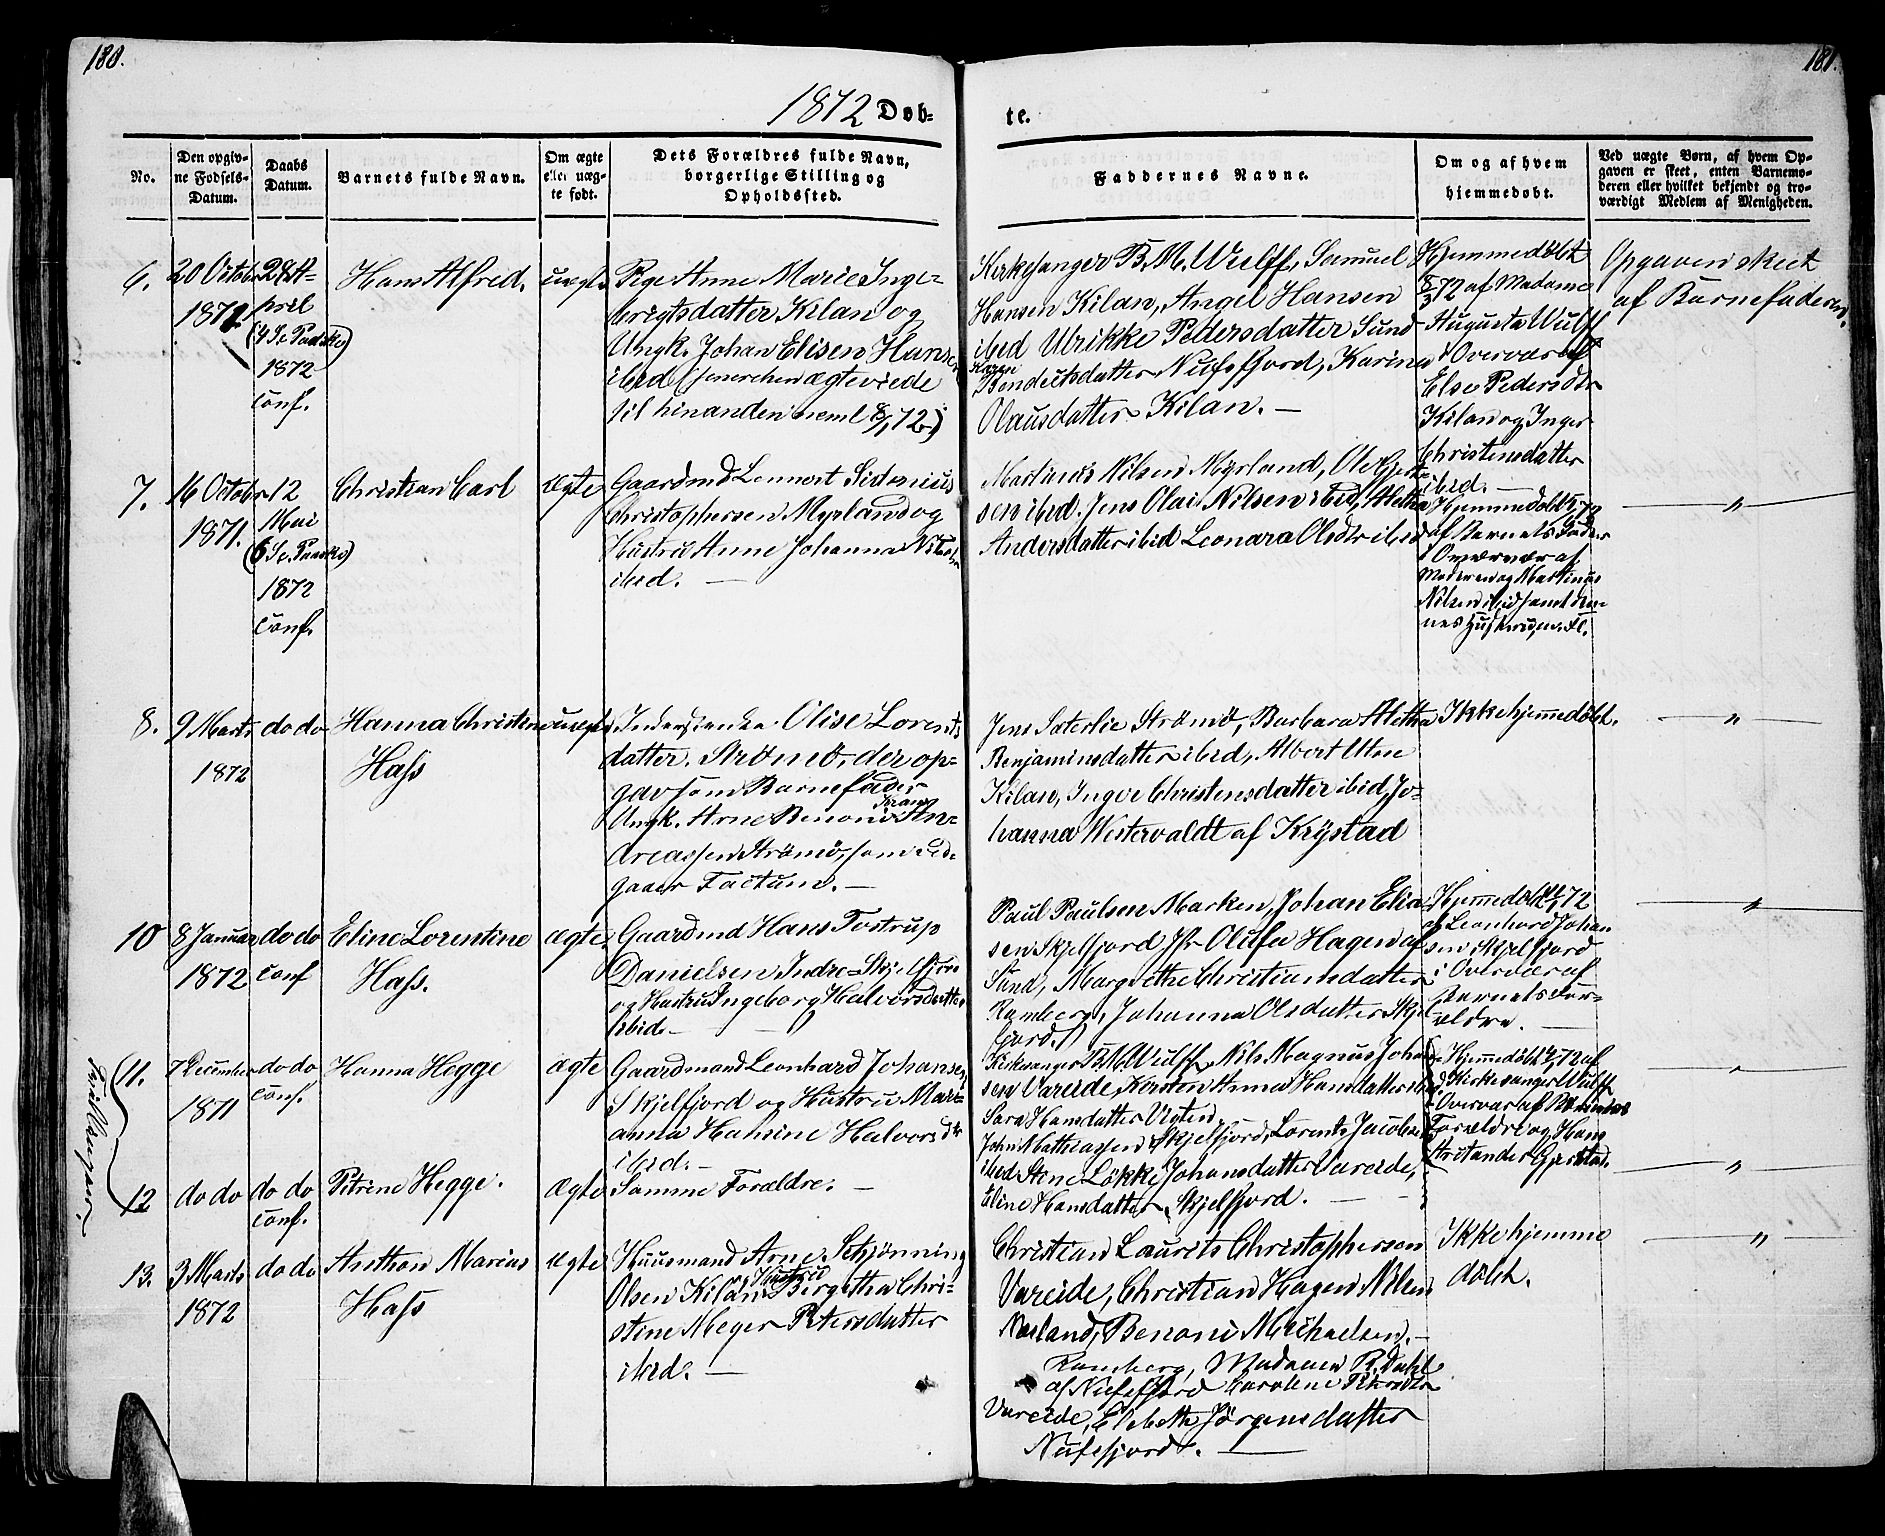 180.
181.
1872 Døb-
te.
No.
Den opgiv-
ne Fødsels-
Datum.
Daabs
Datum.
Barnets fulde Navn.
Om ægte
eller uæg-
te født.
Dets Forældres fulde Navn,
borgerlige Stilling og
Opholdssted.
Faddernes Navne.
Om og af hvem
hjemmedøbt.
Ved uægte Børn, af hvem Op-
gaven er skeet, enten Barnemo-
deren eller hvilket bekjendt og tro-
værdigt Medlem af Menigheden.
6.
20 Octobr
1871
28 A-
pril
(4 S. e. Paaske)
1872
conf.
Hans Alfred.
uægte
Pge Anne Marie Inge-
brigtsdatter Kilan og
Ungk. Johan Elisen Hansen
ibid (senerehen ægteviede
til hinanden neml 8/1 72)
Kirkesanger B. M. Wulff, Samuel
Hansen Kilan, Angel Hansen
ibid Ulrikke Pedersdatter Sund
Karen
Bendictsdatter Nufsfjord, Karina
Olausdatter Kilan. —
Hjemmedöbt
8/3 72 af Madame
Augusta Wulff
i Overvær af
Else Pedersdtr
Kilan og Inger
Christensdatter
ibid. —
Opgaven skeet
af Barnefaderen.
7.
16 Octobr
1871.
12
Mai
(6 S. e. Paaske)
1872
conf.
Christian Carl
ægte
Gaardmd Lennert Sidonius
Christophersen Myrland og
Hustru Anne Johanna
ibid. —
Martinus Nilsen Myrland, Ole
sen ibid. Jens Olai Nilsen ibid, Aletha
Andersdatter ibid Leonara Olsdtr ibid
Hjemmedöbt
af Barnets Fader
i Overvær af
Moderen og Martinus
Nilsen ibid samt den-
nes Hustru m. Fl.
"
8.
9 Marts
1872
do do
Hanna Christine
Hass
uægte
Olise Lorents
datter, Strömö, der op-
gav som Barnefader
Ungk. Arne Benoni An-
dreassen Strömö, som ved-
gaaer Factum. —
Jens Saterlie Strömö, Barbara Aletha
Benjaminsdatter ibid, Albert Utne
Kilan, Inger Christensdatter ibid, Jo-
hanna Westervaldt af Krÿstad
Ikke hjemmedöbt.
"
10
8 Januar
1872
do do
conf
Eline Lorentine
Hass.
ægte
Gaardmd Hans Tostrup
Danielsen Indre-Skjelfjord
og Hustru Ingeborg Halvorsdatter
ibid. —
Paul Paulsen Marken, Johan Elia-
sen Skjelfjord Jfr Olufa Hagen af
Sund, Margrethe Christiansdatter
Ramberg, Johanna Olsdatter Skjel-
fjord.
Hjemmedöbt 72
af Leonhard Johan-
sen Skjelfjord
i Overvær af
Barnets For-
ældre. —
"
Tvillinger.
11.
7 December
1871
do do
conf.
Hanna Hegge
ægte
Gaardmand Leonhard Johansen
Skjelfjord og Hustru Mari-
anna Hansine Halvorsdtr
ibid. —
Kirkesanger B M Wulff, Nils Magnus Johan-
sen Vareide, Anna Hansdatter ibid
Sara Hansdatter Vigten
John Mathiassen Skjelfjord, Lorents Jacobsen
ibid Stine Lökke Johansdatter Vareide,
Eline Hansdatter Skjelfjord. —
Hjemmedöbt 72 af
Kirkesanger Wulff
i Overvær af Barnets
Forældre og Hans
"
12
do do
do do
conf.
Petrine Hegge.
Ægte
Samme Forældre. —
"
13.
3 Marts
1872
do do
Anthon Marius
Hass
ægte
Huusmand Arne Schjønning
Hustru
Olsen Kilan Bergetha Chri-
stine Meyer Petersdatter
ibid. —
Christian Laurits Christophersen
Vareide, Christian Hagen Nilsen
Næsland, Benoni Michaelsen. —
Ramberg, Madame R. Dahl
af Nufsfjord Caroline Petersdtr
Vareide, Elsbeth Jörgensdatter
Nufsfjord. —
Ikke hjemme
döbt.
"